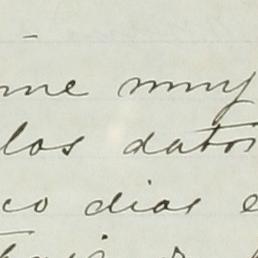 me muy
los datos
co dias e